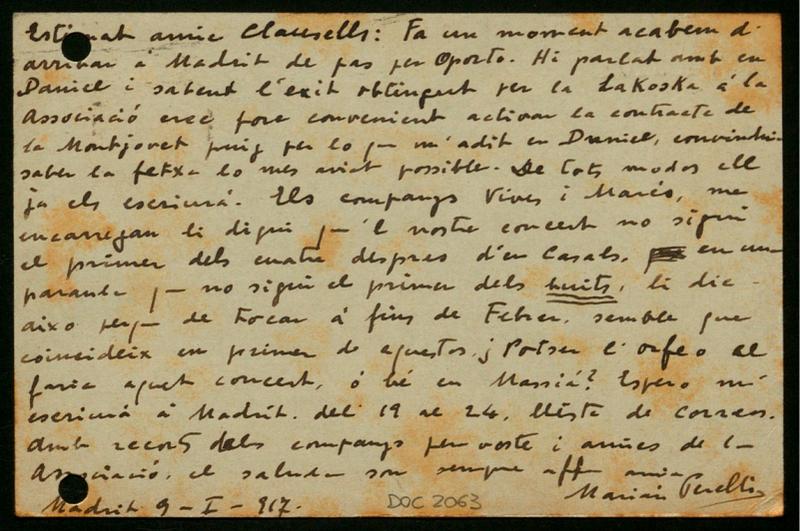 Estimat amic Clausells: Fa un moment acabem d'
arrivar á Madrit de pas per Oporto. Hi parlat amb en
Daniel i sabent l'exit obtingut per la LaKosKa á la
Associació crec fora convenient activar la contracta de
la Montjovet puig per lo qu m'adit en Daniel, convindria
saber la fetxa lo mes aviat possible. De tots modos ell
ja els escriurá. Els companys Vives i Marés, me
encarregan li digui qu'l nostre concert no sigui
el primer dels cuatre despres d'en Casals, en una
paraula qu no sigui el primer dels buits, li dic
aixo perqu de tocar á fins de Febrer, sembla que
coincideix en primer de aquestos. ¿Potser l'orfeo el
faria aquet concert, ó bé en Massiá? Espero m'
escriurá á Madrit. del 19 al 24. Llista de Correos.
Amb recorts dels companys per voste i amics de l'
Associació. el saluda son sempre aff amic
Mariàn Perelló
Madrit 9-I-917.
DOC 2063